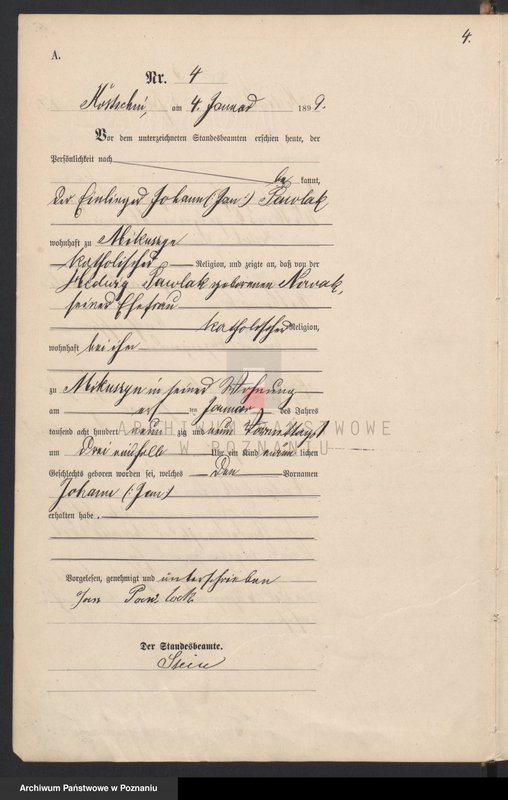 4.
A.
Nr. 4
Kostschin, am 4. Januar 1899.
Vor dem unterzeichneten Standesbeamten erschien heute, der
Persönlichkeit nach
be kannt,
der Einlieger Johann (Jan) Pawlak
wohnhaft zu Mikuszye
katholischer Religion, und zeigte an, daß von der
Hedwig Pawlak geborenen Nowak,
seiner Ehefrau
katholischer Religion,
wohnhaft bei ihm
zu Mikuszye in seiner Wohnung
am ersten Januar des Jahres
tausend acht hundert neun zig und neun Vormittags
um Drei einhalb Uhr ein Kind männ lichen
Geschlechts geboren worden sei, welches den Vornamen
Johann (Jan)
erhalten habe.
Vorgelesen, genehmigt und unterschrieben
Jan Pawlack
Der Standesbeamte.
Stein
ARCHIWUM PAŃSTWOWE
W POZNANIU
Archiwum Państwowe w Poznaniu